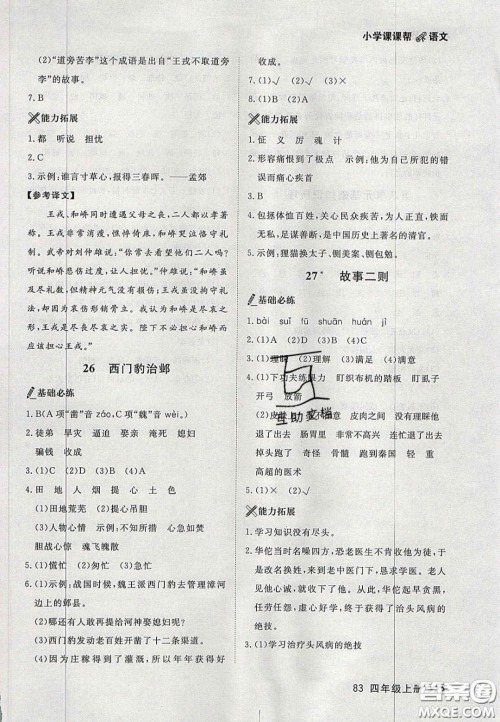 小学课课帮 语文
(2)“道旁苦李”这个成语是出自“王戎不取道旁
李”的故事。
7. B
能力拓展
1. 都 听说 担忧
2. C
3. 示例:谁言寸草心,报得三春晖。——孟郊
【参考译文】
王戎、和峤同时遭遇父母之丧,二人都以孝著
称。王戎骨瘦如柴,和峤哀伤哭泣,恪守礼
制。武帝对仲雄说:“你常去看望他们二人
吗?我听说和峤悲痛过礼,真让人担忧。”仲雄
说:“和峤虽恪守礼制,但精神元气没有受损;
王戎虽没有拘守礼法,却因哀伤形销骨立。我
认为和峤是尽孝不毁生,而王戎是尽哀衰亡。
陛下不必担忧和峤而
应担忧王戎。”
26 西门豹治邺
基础必练
1. B(A项“凿”音záo,C项“魏”音wèi。)
2. 徒弟 旱灾 逼迫 娶亲 淹死 媳妇
骗钱 收成
3. (1)D (2)B (3)A (4)C
4. 田 地 人 烟 提 心 土 色
(1)田地荒芜 (2)提心吊胆
(3)人物心情 示例:不知所措 心急如焚
胆战心惊 魂飞魄散
5. (1)慌忙 (2)匆忙 (3)急忙
6. (1)示例:战国时候,魏王派西门豹去管理漳河
边上的邺县。
(2)哪还有人敢再提给河神娶媳妇呢?
(3)西门豹发动老百姓开凿了十二条渠道。
(4)因为庄稼得到了灌溉,所以年年获得好
收成。
7. (1)√ (2)× (3)√
8. (1)√ (2)× (3)√ (4)√
能力拓展
1. 怔 义 厉 魂 计
2. 形容痛恨到了极点 示例:他因此而犯下的错
误真令人痛心疾首
3. B
4. 包拯体恤百姓、关心民众疾苦、为官清廉、铁面
无私,足谋善断,是中国历史上著名的清官。
5. 示例:狸猫换太子、铡美案、铡包勉。
27* 故事二则
基础必练
1. bài suǐ fǔ shuān huàn jì
2. C
3. (1)理解 (2)理会 (3)满足 (4)满意
4. (1)下功夫练眼力 盯织布机的踏板 盯虱子
开弓 放箭
(2)皮肤上 皮肉之间 皮肉之间 没有理睬他
退了出去 肠胃里 非常不高兴 连忙退了出去
掉头就跑 奇怪 骨髓 秦国 病死 扁鹊
高超的医术
5. (1)× (2)√
能力拓展
1. 学习知识没有尽头。
2. 华佗当时名噪四方,恐老医师无意传教,于是
改名换姓,来到老中医门下,恳求学医。
3. 示例:我学到了做人要像华佗那样
创新,虚心好学,经过努力终于学会治疗头风病的
绝技。
3. (1)学习治疗头风病的绝技
互助文档
83 四年级上册